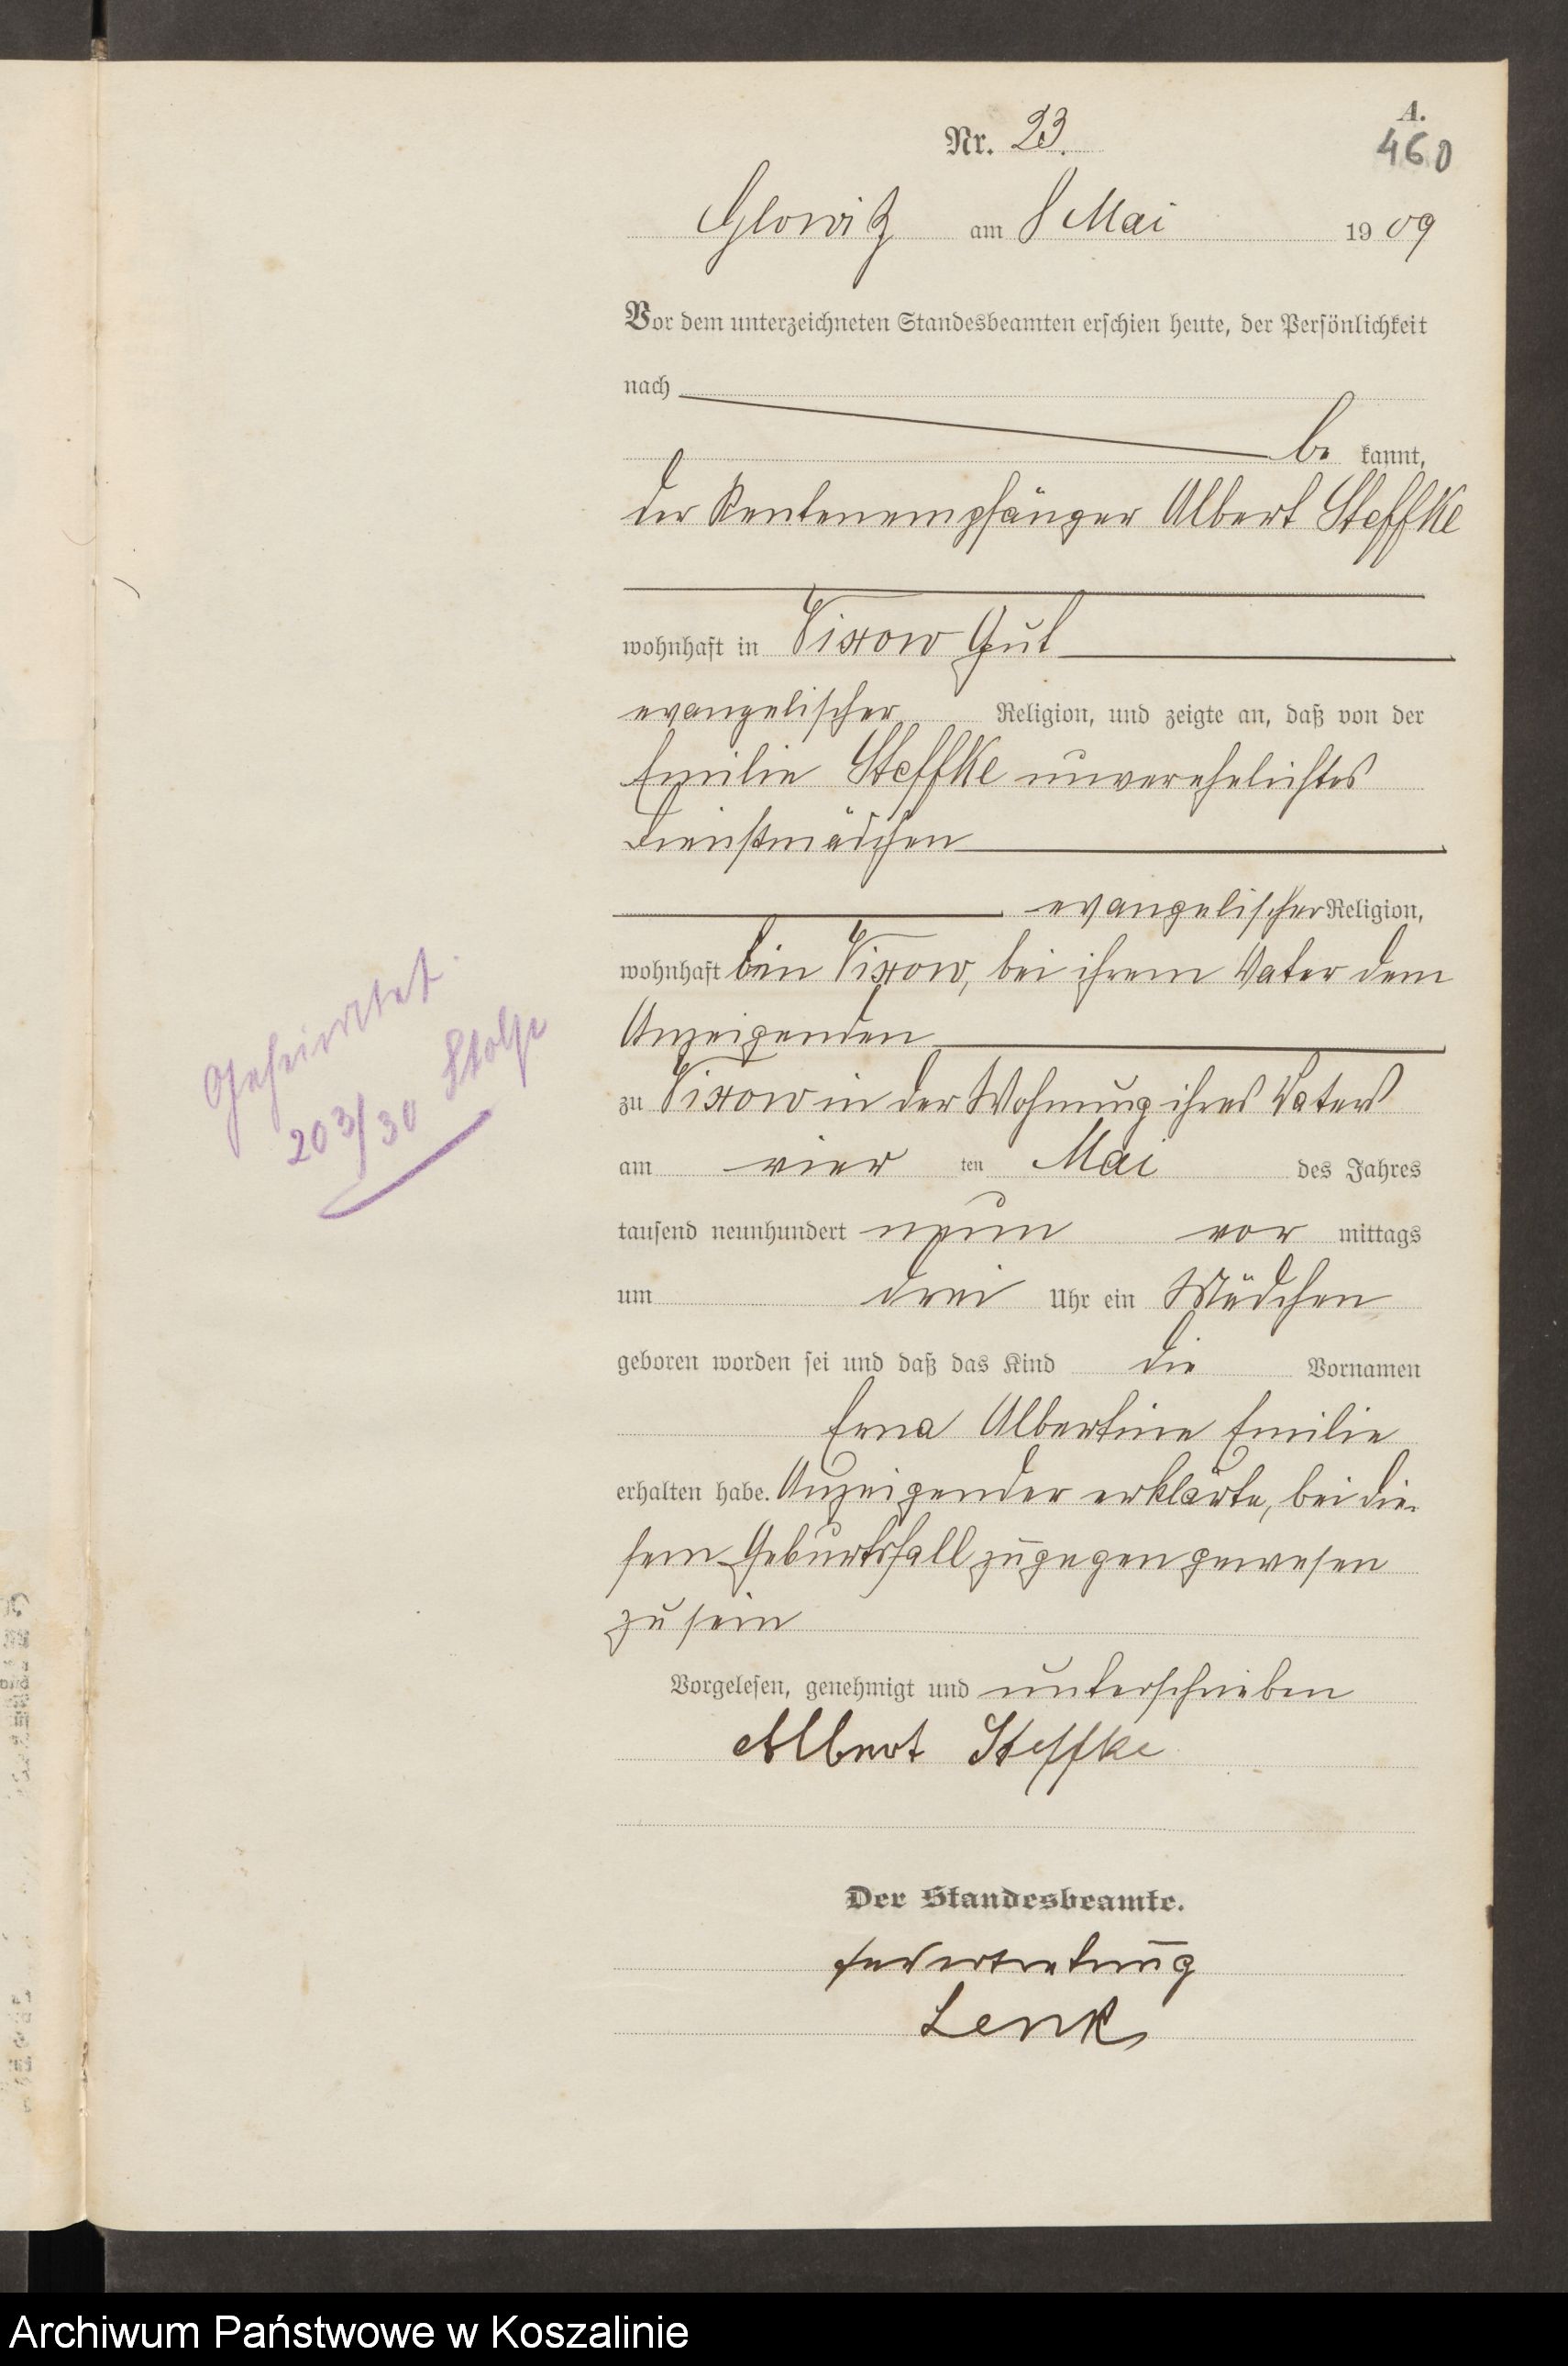 A.
460
Nr. 23.
Glowitz am 8 Mai 1909
Vor dem unterzeichneten Standesbeamten erschien heute, der Persönlichkeit
nach
be kannt,
der Rentenempfänger Albert Steffke
wohnhaft in Vixow Gut
evangelischer Religion, und zeigte an, daß von der
Emilie Steffke unverehelichtes
Dienstmädchen
evangelischer Religion,
wohnhaft in Vixow, bei ihrem Vater dem
Anzeigenden
zu Vixow in der Wohnung ihres Vaters
am vier ten Mai des Jahres
tausend neunhundert neun vor mittags
um drei Uhr ein Mädchen
geboren worden sei und daß das Kind die Vornamen
Erna Albertine Emilie
erhalten habe. Anzeigender erklärte, bei die-
sem Geburtsfall zugegen gewesen
zu sein
Vorgelesen, genehmigt und unterschrieben
Albert Steffke
Der Standesbeamte.
In Vertretung
Lenk
Geheiratet
20 3/30 Stolp
Archiwum Państwowe w Koszalinie